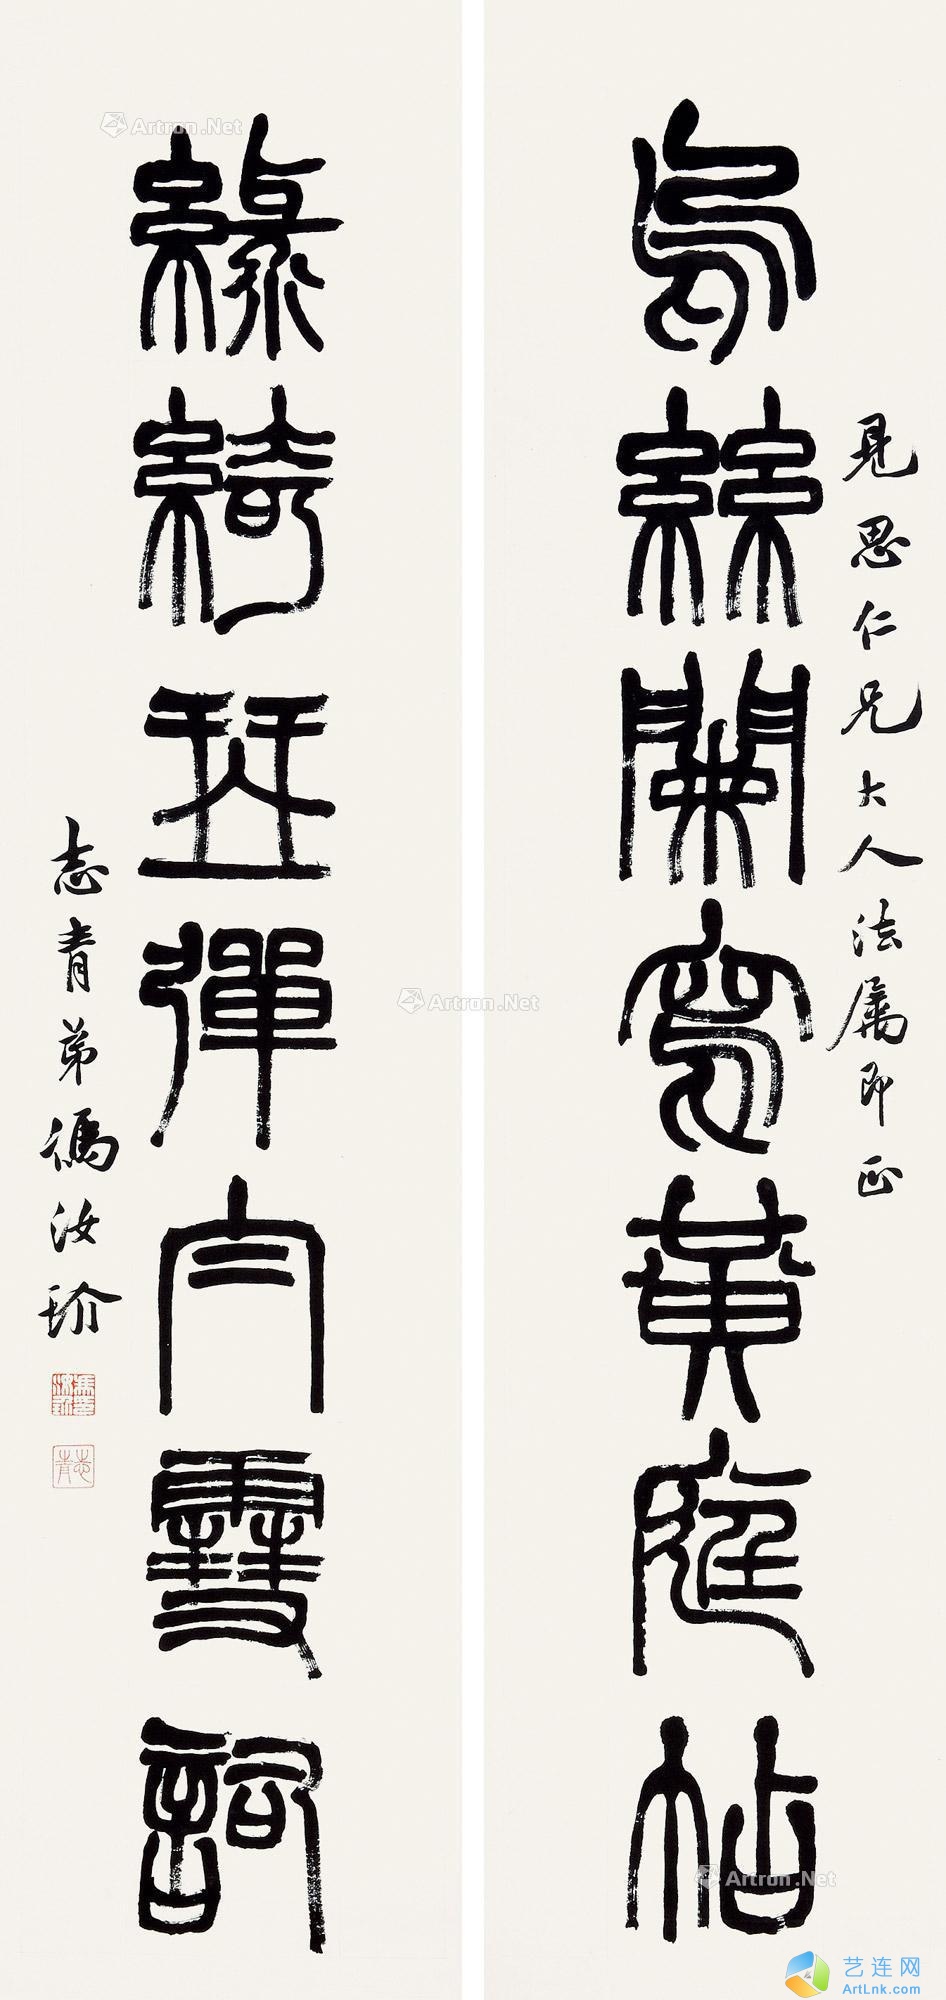 烏絲闌寫黃庭帖
見思仁兄大人法屬即正
綠綺琴彈白雪詞
志青弟馮汝玠
志青
Artron.Net
Artron.Net
Artron.Net
艺连网
ArtLnk.com